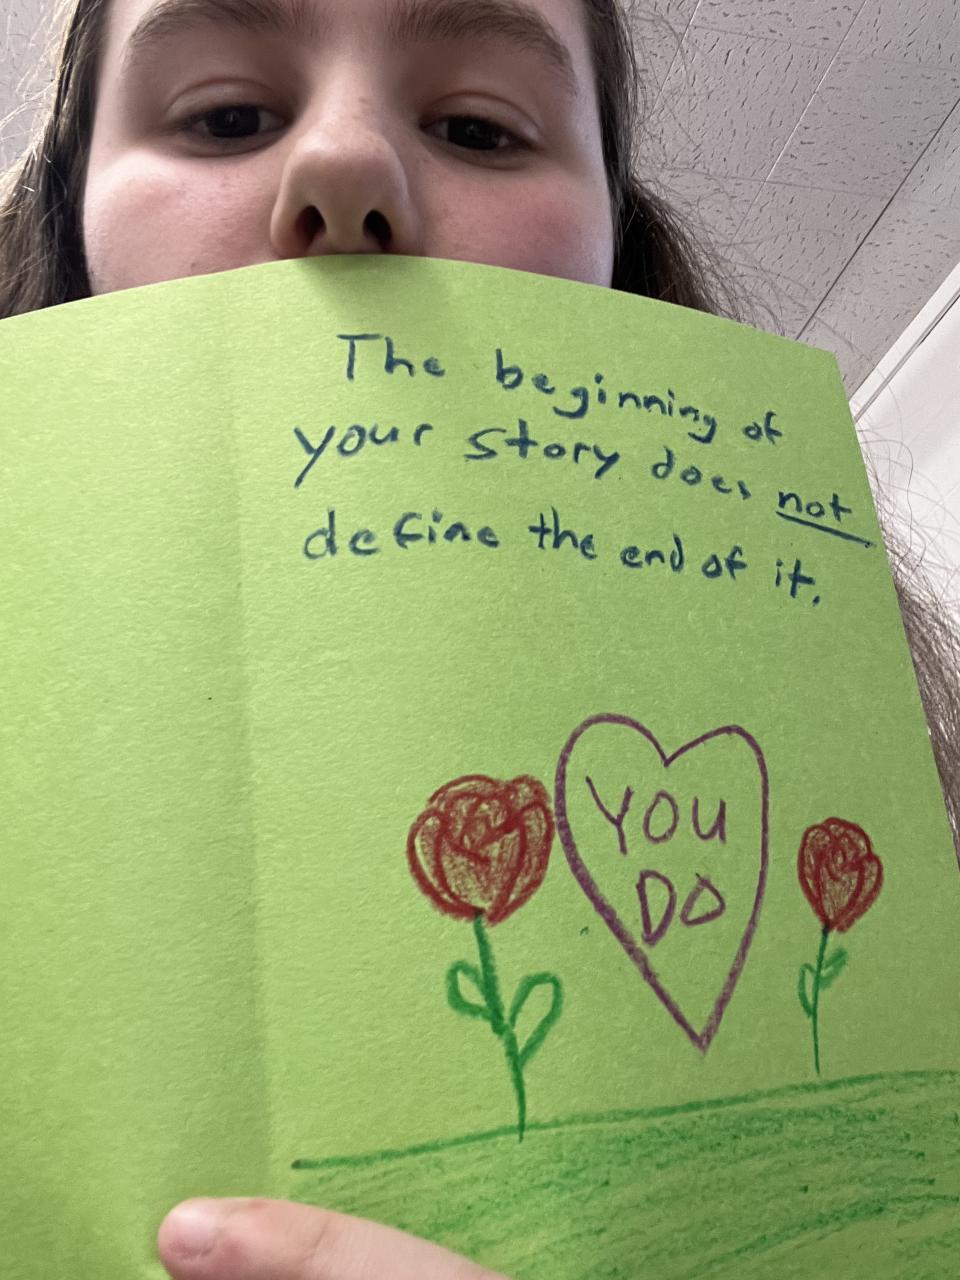 The beginning of
your story does not
define the end of it.
YOU
DO